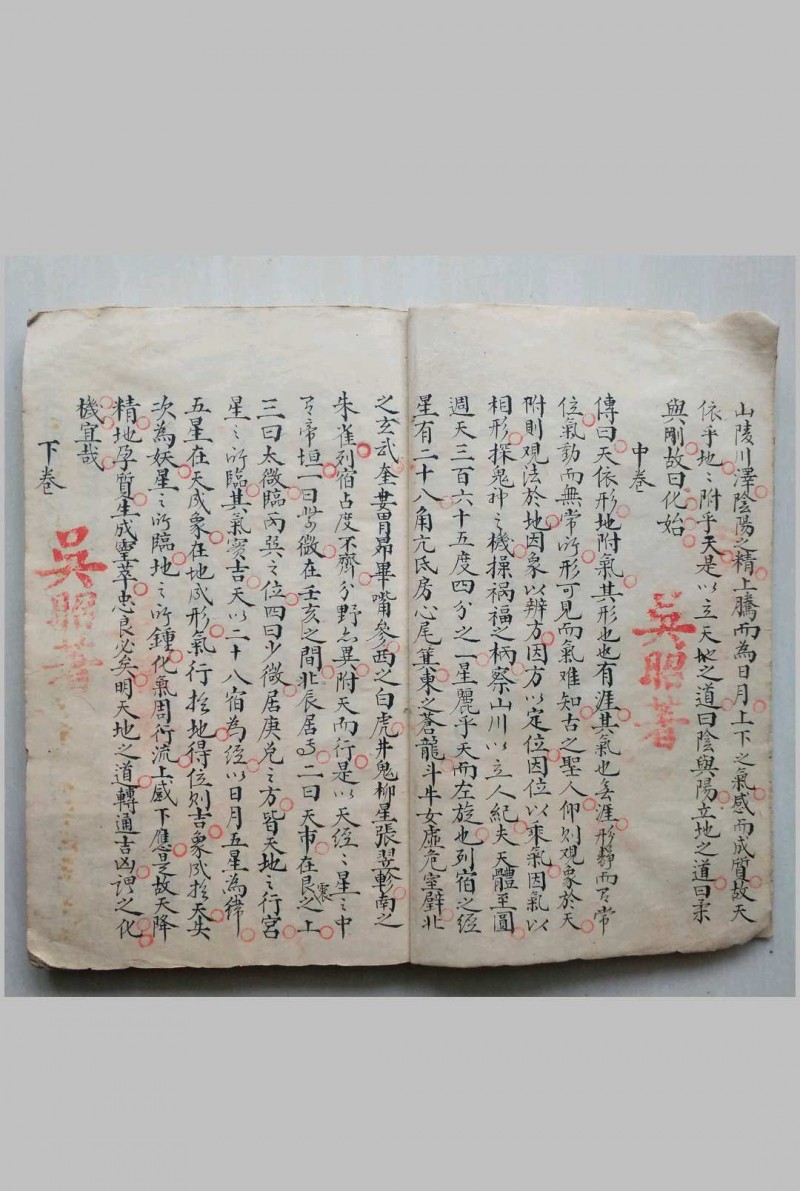 山陵川澤陰陽之精上騰而為日月上下之氣感而成質故天
依乎地〻附乎天是以立天地之道曰陰與陽立地之道曰柔
與剛故曰化始
中卷
吳昭著
傳曰天依形地附氣其形也也有涯其氣也無涯形靜而有常
位氣動而無常所形可見而氣难知古之聖人仰則观象於天
附則观法於地因象以辨方因方以定位因位以乘氣因氣以
相形探鬼神之機操祸福之柄察山川以立人紀夫天體至圓
週天三百六十五度四分之一星麗乎天而左旋也列宿之経
星有二十八角亢氐房心尾箕東之蒼龍斗牛女虛危室壁北
之玄武奎婁胃昴畢嘴參西之白虎井鬼柳星張翌軫南之
朱雀列宿占度不齊分野亦異附天而行是以天経〻星〻中
有帝垣一曰紫微在壬亥之間北辰居焉二曰天市在艮震之上
三曰太微臨丙巽之位四曰少微居庚兌之方皆天地之行宮
星之所臨其氣實吉天以二十八宿為経以日月五星為緯
五星在天成象在地成形氣行於地得位則吉象成於天失
次為妖星之所臨地之所鍾化氣周行流上感下應是故天降
精地孕質生成靈萃忠良必矣明天地之道轉通吉凶理之化
機宜哉
下卷
吳昭著